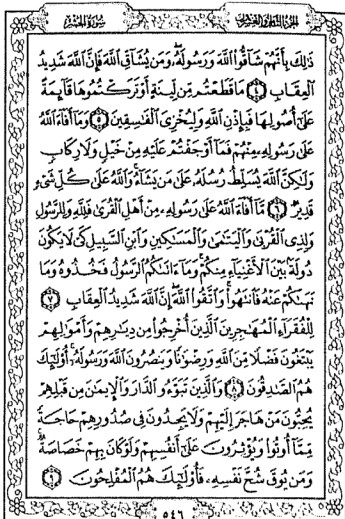 الجزء الثامن والعشرون
سورة الحشر
ذَٰلِكَ بِأَنَّهُمْ شَاقُّوا۟ ٱللَّهَ وَرَسُولَهُۥ ۖ وَمَن يُشَآقِّ ٱللَّهَ فَإِنَّ ٱللَّهَ شَدِيدُ
ٱلْعِقَابِ ٤ مَا قَطَعْتُم مِّن لِّينَةٍ أَوْ تَرَكْتُمُوهَا قَآئِمَةً
عَلَىٰٓ أُصُولِهَا فَبِإِذْنِ ٱللَّهِ وَلِيُخْزِىَ ٱلْفَـٰسِقِينَ ٥ وَمَآ أَفَآءَ ٱللَّهُ
عَلَىٰ رَسُولِهِۦ مِنْهُمْ فَمَآ أَوْجَفْتُمْ عَلَيْهِ مِنْ خَيْلٍ وَلَا رِكَابٍ
وَلَـٰكِنَّ ٱللَّهَ يُسَلِّطُ رُسُلَهُۥ عَلَىٰ مَن يَشَآءُ ۚ وَٱللَّهُ عَلَىٰ كُلِّ شَىْءٍ
قَدِيرٌ ٦ مَّآ أَفَآءَ ٱللَّهُ عَلَىٰ رَسُولِهِۦ مِنْ أَهْلِ ٱلْقُرَىٰ فَلِلَّهِ وَلِلرَّسُولِ
وَلِذِى ٱلْقُرْبَىٰ وَٱلْيَتَـٰمَىٰ وَٱلْمَسَـٰكِينِ وَٱبْنِ ٱلسَّبِيلِ كَىْ لَا يَكُونَ
دُولَةًۢ بَيْنَ ٱلْأَغْنِيَآءِ مِنكُمْ ۚ وَمَآ ءَاتَىٰكُمُ ٱلرَّسُولُ فَخُذُوهُ وَمَا
نَهَىٰكُمْ عَنْهُ فَٱنتَهُوا۟ ۚ وَٱتَّقُوا۟ ٱللَّهَ ۖ إِنَّ ٱللَّهَ شَدِيدُ ٱلْعِقَابِ ٧
لِلْفُقَرَآءِ ٱلْمُهَـٰجِرِينَ ٱلَّذِينَ أُخْرِجُوا۟ مِن دِيَـٰرِهِمْ وَأَمْوَٰلِهِمْ
يَبْتَغُونَ فَضْلًا مِّنَ ٱللَّهِ وَرِضْوَٰنًا وَيَنصُرُونَ ٱللَّهَ وَرَسُولَهُۥٓ ۚ أُو۟لَـٰٓئِكَ
هُمُ ٱلصَّـٰدِقُونَ ٨ وَٱلَّذِينَ تَبَوَّءُو ٱلدَّارَ وَٱلْإِيمَـٰنَ مِن قَبْلِهِمْ
يُحِبُّونَ مَنْ هَاجَرَ إِلَيْهِمْ وَلَا يَجِدُونَ فِى صُدُورِهِمْ حَاجَةً
مِّمَّآ أُوتُوا۟ وَيُؤْثِرُونَ عَلَىٰٓ أَنفُسِهِمْ وَلَوْ كَانَ بِهِمْ خَصَاصَةٌ ۚ
وَمَن يُوقَ شُحَّ نَفْسِهِۦ فَأُو۟لَـٰٓئِكَ هُمُ ٱلْمُفْلِحُونَ ٩
٥٤٦